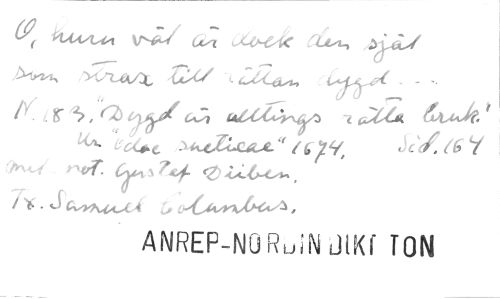 O, huru väl är dock den själ
som strax till rättan dygd...
N. 183. "Dygd är alltings rätta bruk."
Ur "Odae sueticae" 1674. Sid. 164
met. not. Gustaf Düben.
Tx. Samuel Columbus.
ANREP-NORDIN DIKT TON